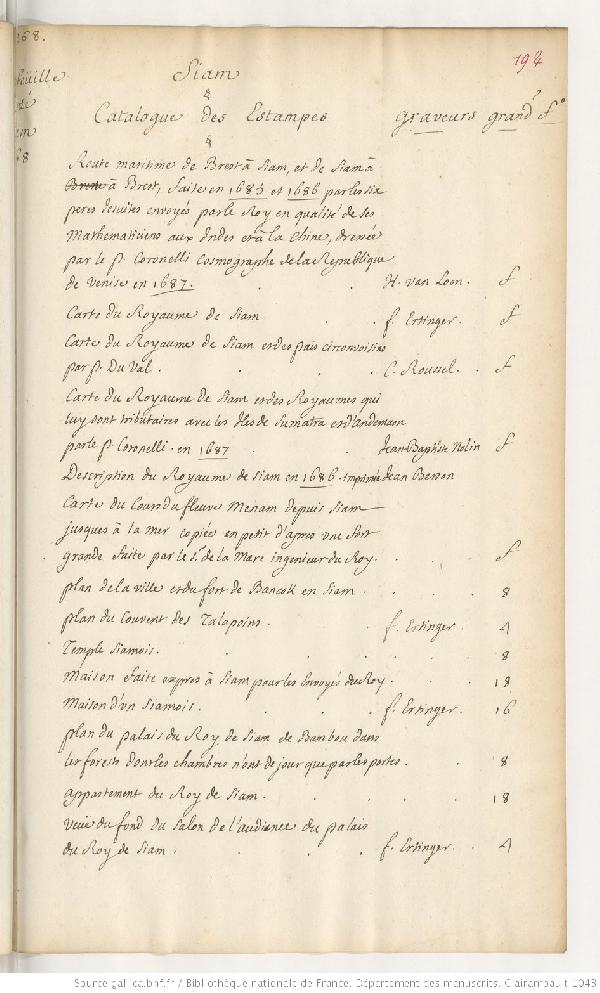 168.
194
Siam
4
Catalogue des Estampes Graveurs grand.r f.o
4
Route maritime de Brest à Siam, et de Siam à
à Brest, faite en 1685 et 1686 par les six
peres Jesuites envoyés par le Roy en qualité de ses
Mathematiciens aux Indes et à la Chine, dressée
par le p. Coronelli Cosmographe de la Republique
de Venise en 1687. H. van Loon. f
Carte du Royaume de Siam f. Ertinger. f
Carte du Royaume de Siam et des païs circonvoisins
par p. Du Val. C. Roussel. f
Carte du Royaume de Siam et des Royaumes qui
luy sont tributaires avec les Isles de Sumatra et d'andemaon
par le p. Coronelli. en 1687 Jean Baptiste Nolin f
Description du Royaume de Siam en 1686. Imprimée Jean Besson
Carte du Cours du fleuve Menam depuis Siam
jusques à la mer copiée en petit d'apres une fort
grande faite par le S.r de la Mare ingenieur du Roy. f
plan de la ville et du fort de Bancok en Siam 8
plan du Couvent des Talapoins. f. Ertinger. 4
Temple Siamois. 8
Maison faite exprés à Siam pour les Envoyés du Roy. 18
Maison d'vn Siamois. f. Ertinger. 16
plan du palais du Roy de Siam de Bambou dans
les forests dont les chambres n'ont de jour que par les portes. 8
appartement du Roy de Siam. 18
Veüe du fond du Salon de l'audience du palais
du Roy de Siam. f. Ertinger. 4
Source gallica.bnf.fr / Bibliothèque nationale de France. Département des manuscrits. Clairambault 1043